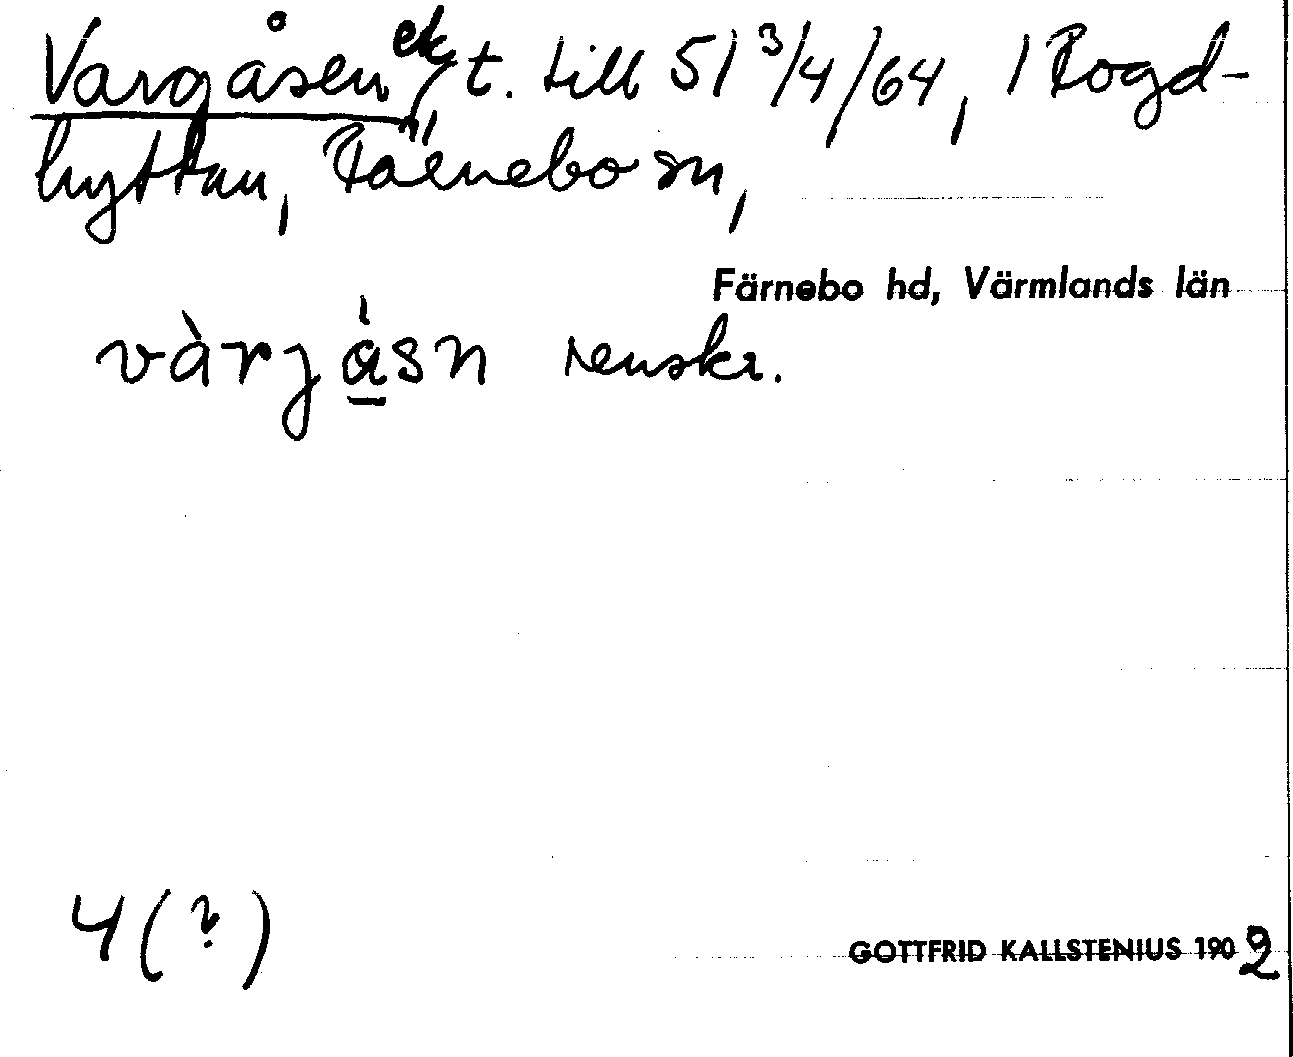 Vargåsen ek, t. till 51 3/4/64, 1 Rogd-
hyttan, Rämebo sn,
Färnebo hd, Värmlands län
vàrjåsn renskr.
4 (?)
GOTTFRID KALLSTENIUS 1902